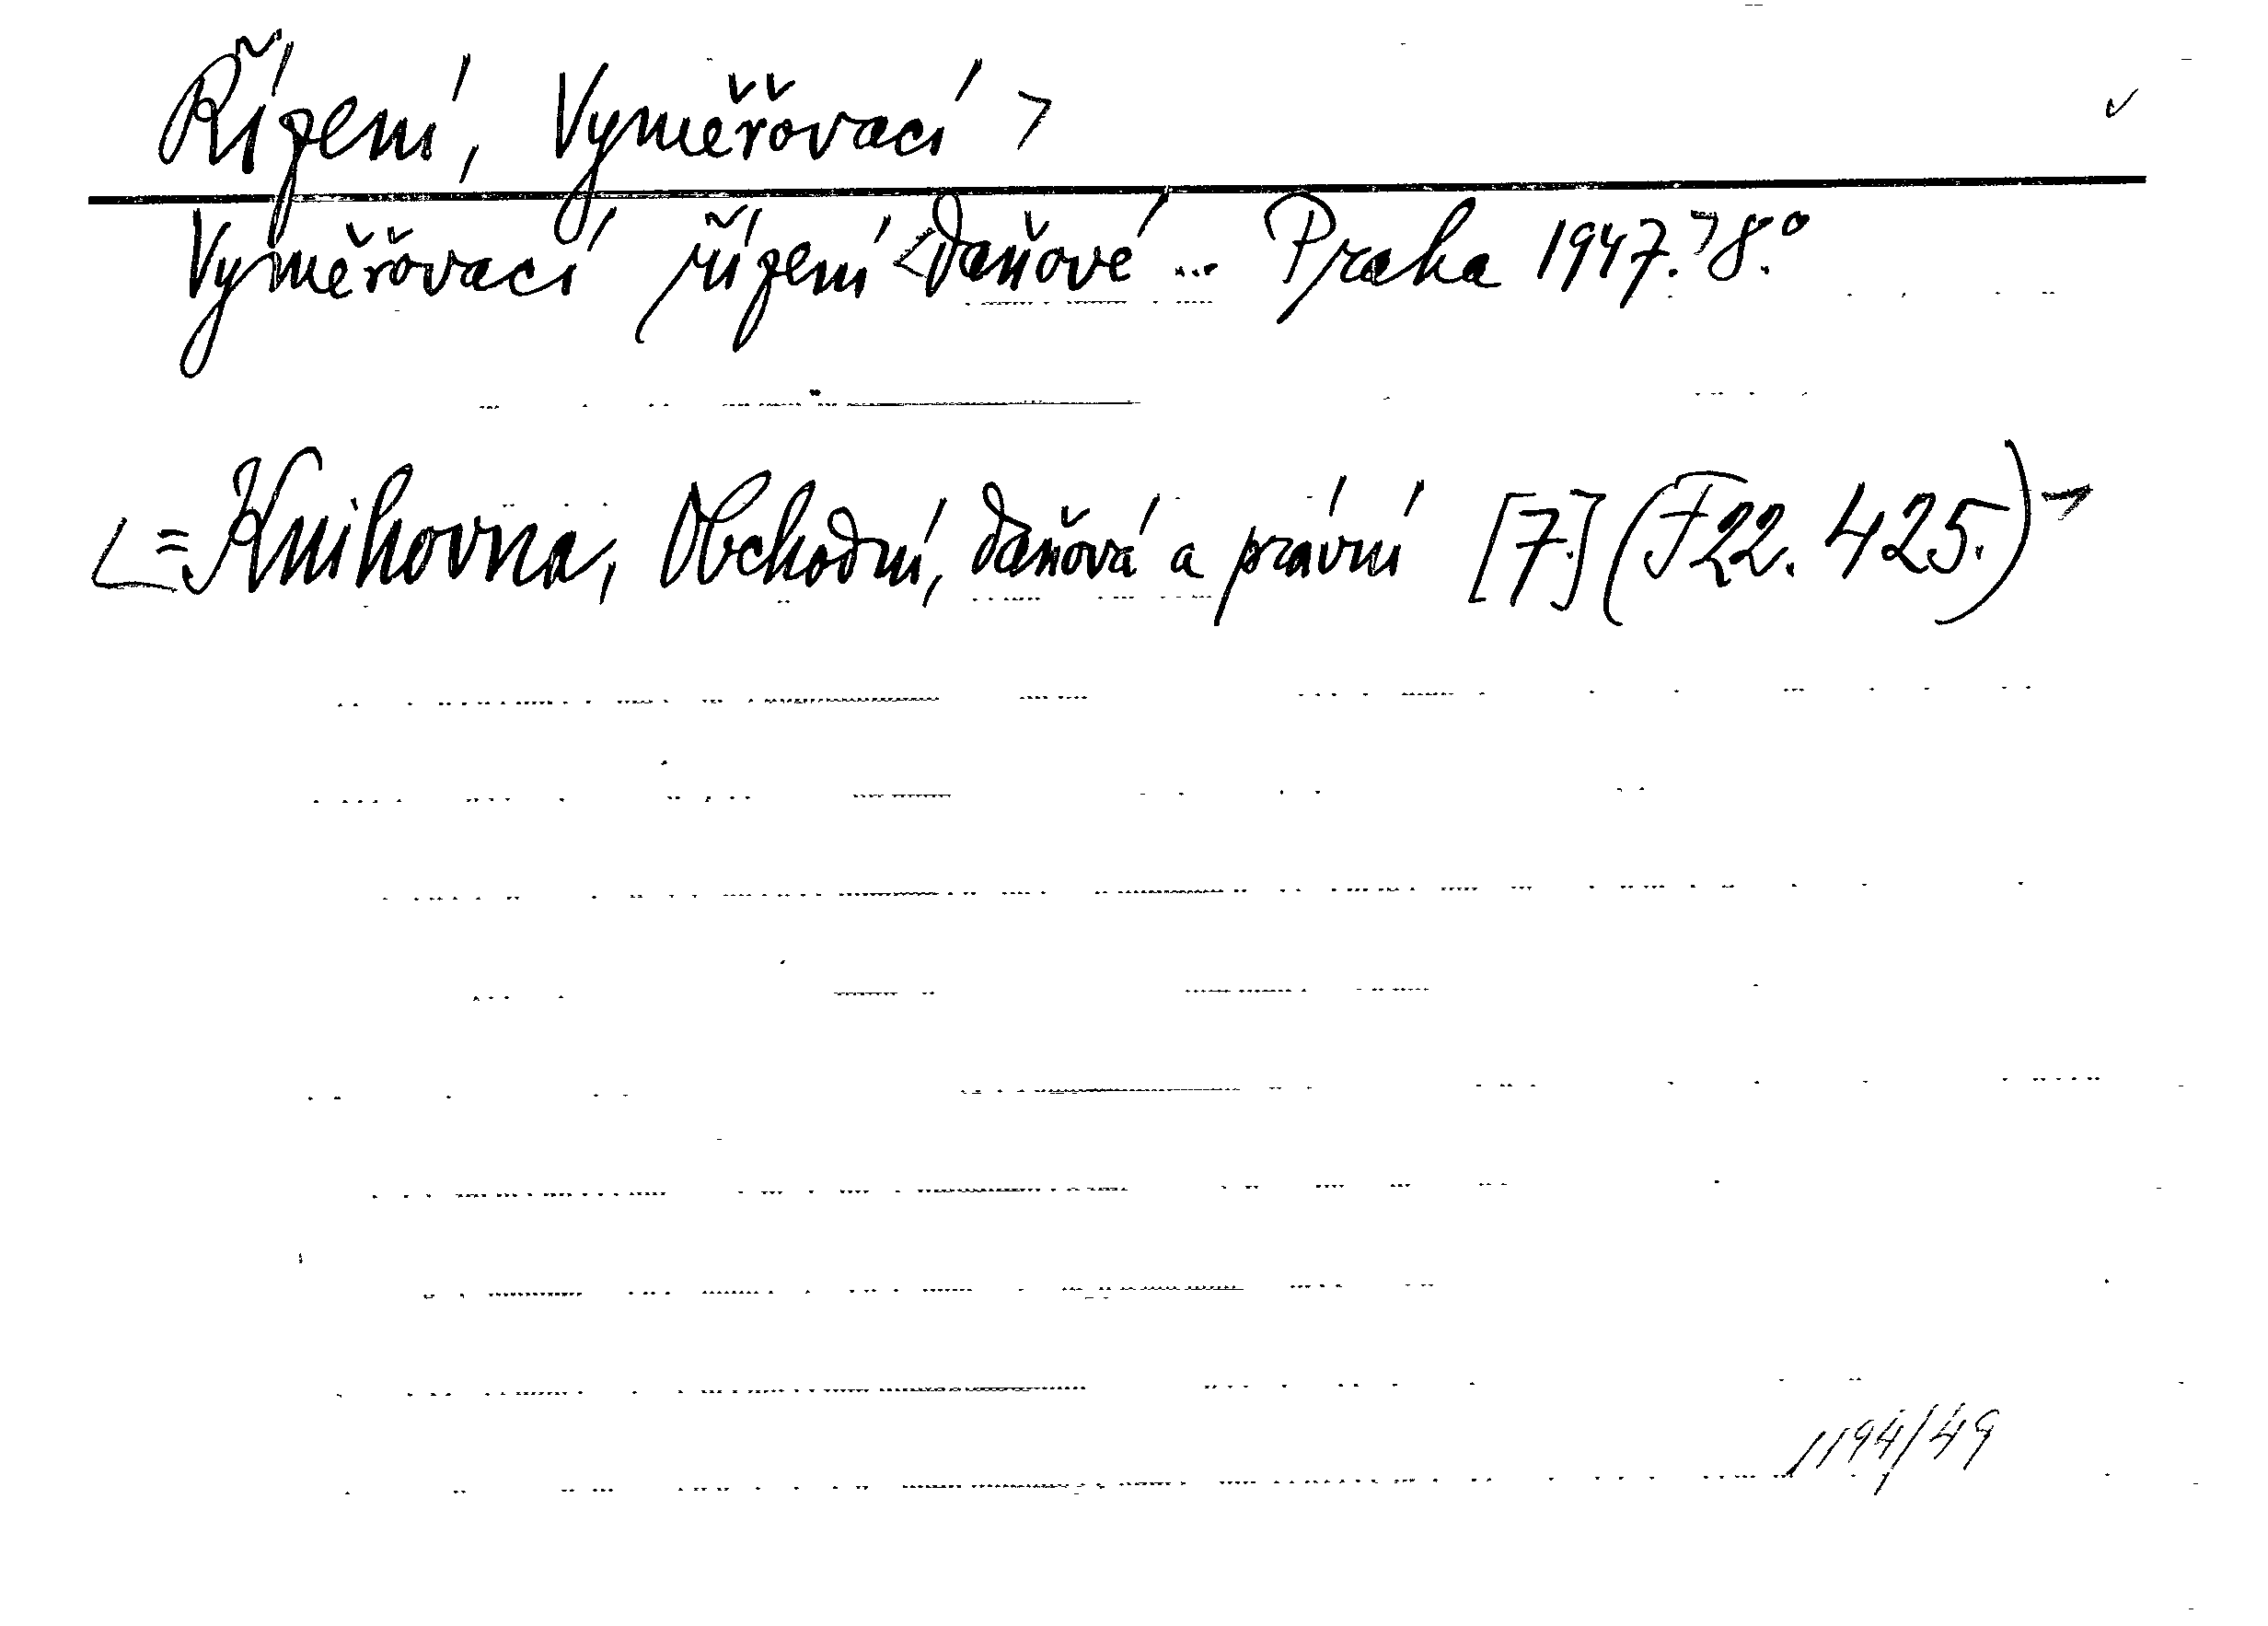 Řízení, Vyměřovací >
Vyměřovací řízení <daňové ... Praha 1947.> 8.°
<= Knihovna, Obchodní, daňová a právní [7.] (F 22. 425.)>
1194/49